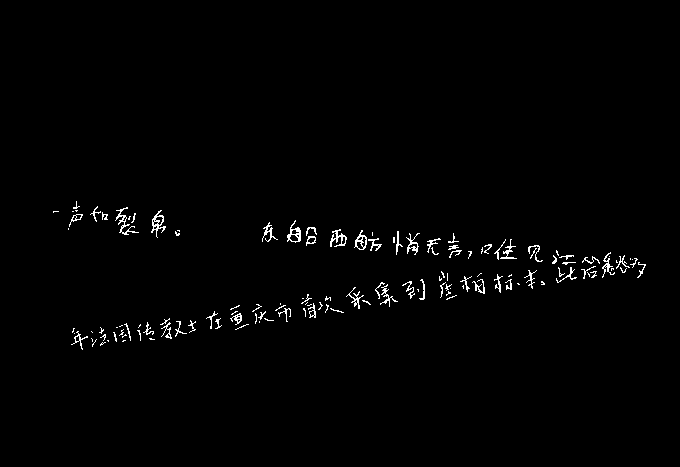 一声如裂帛。 东船西舫悄无言,只住见
年法国传教士在重庆市首次采集到崖柏标本。此答愁